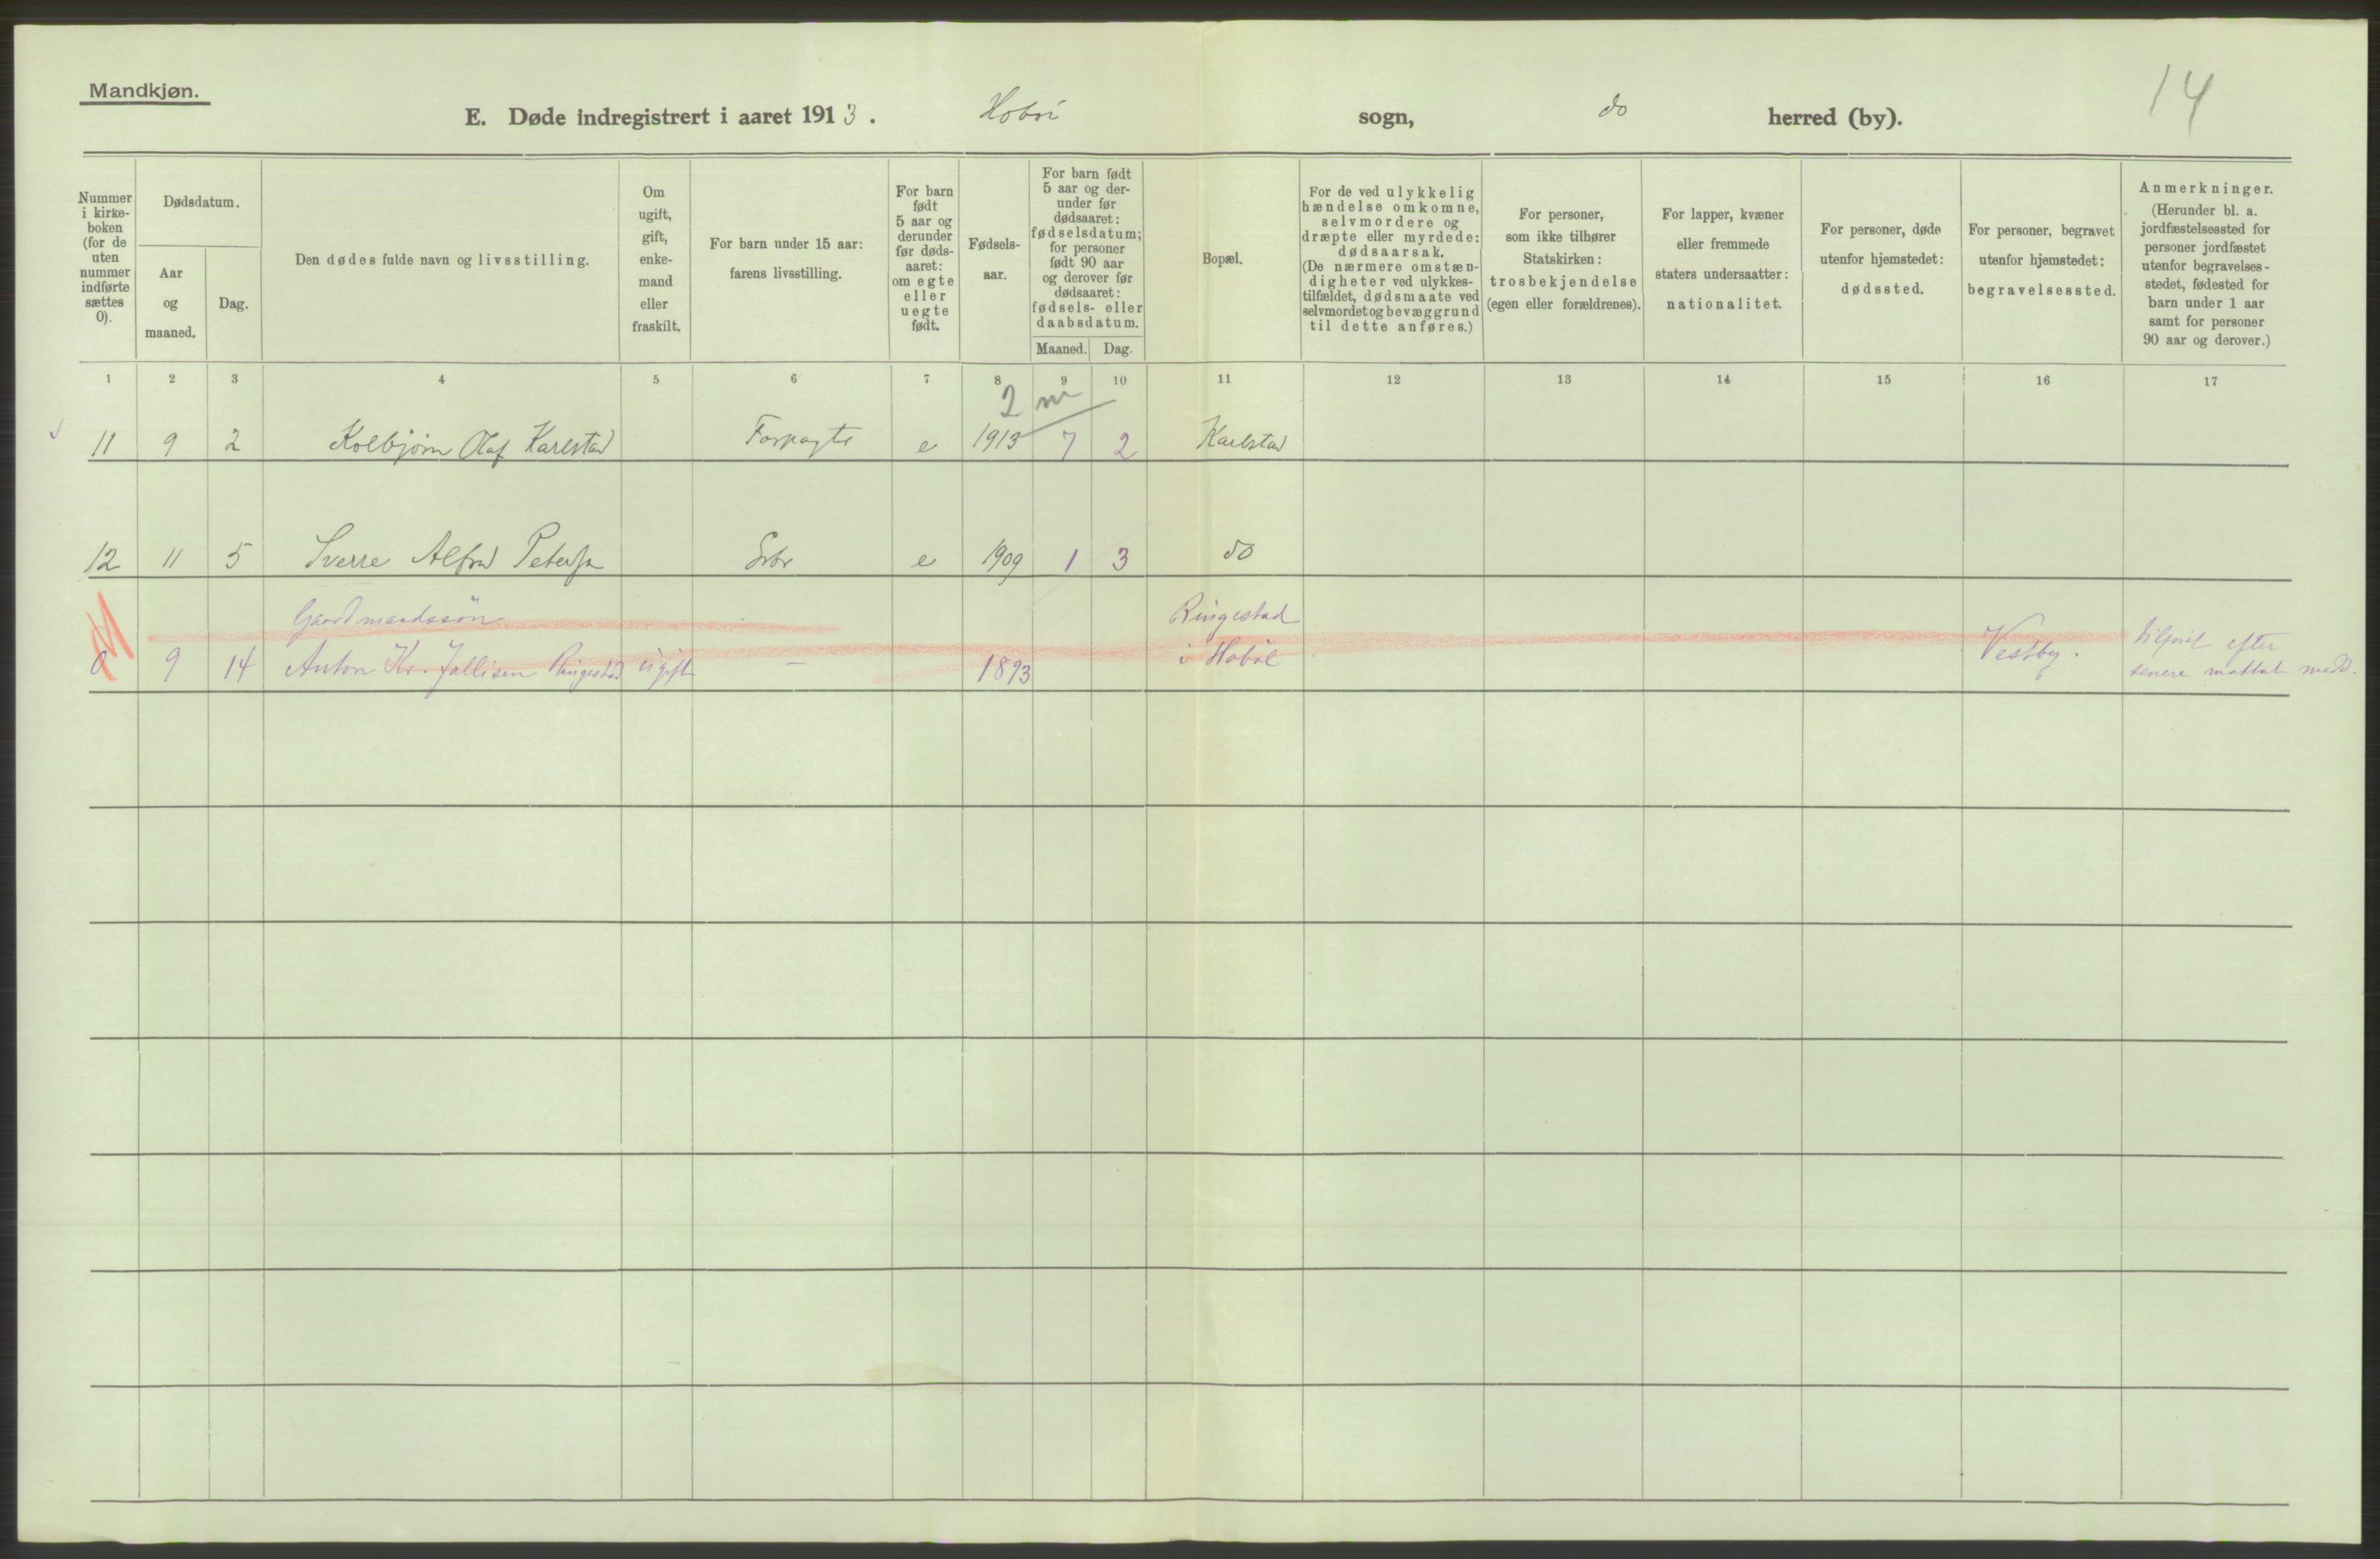 Mandkjøn.
14
E. Døde indregistrert i aaret 1913. Hobøl sogn, do herred (by).
Nummer i kirke-boken (for de uten nummer indførte sættes 0).
Dødsdatum.
Aar og maaned.
Dag.
Den dødes fulde navn og livsstilling.
Om ugift, gift, enke-mand eller fraskilt.
For barn under 15 aar: farens livsstilling.
For barn født 5 aar og derunder før døds-aaret: om egte eller uegte født.
Fødsels-aar.
For barn født 5 aar og der-under før dødsaaret: fødselsdatum; for personer født 90 aar og derover før dødsaaret: fødsels- eller daabsdatum.
Maaned. Dag.
Bopæl.
For de ved ulykkelig hændelse omkomne, selvmordere og dræpte eller myrdede: dødsaarsak. (De nærmere omstæn-digheter ved ulykkes-tilfældet, dødsmaate ved selvmordet og bevæggrund til dette anføres.)
For personer, som ikke tilhører Statskirken: trosbekjendelse (egen eller forældrenes).
For lapper, kvæner eller fremmede staters undersaatter: nationalitet.
For personer, døde utenfor hjemstedet: dødssted.
For personer, begravet utenfor hjemstedet: begravelsessted.
Anmerkninger. (Herunder bl. a. jordfæstelsessted for personer jordfæstet utenfor begravelses-stedet, fødested for barn under 1 aar samt for personer 90 aar og derover.)
1 2 3 4 5 6 7 8 9 10 11 12 13 14 15 16 17
2 m
11 9 2 Kolbjørn Olaf Karlstad e 1913 7 2 Karlstad
12 11 5 Sverre Alfred e 1909 1 3 do
Gaardmandssøn Ringestad
0 9 14 Anton Kr. Ringestad ugift – 1893 i Hobøl Vestby. tilføiet efter
senere mottat medd.